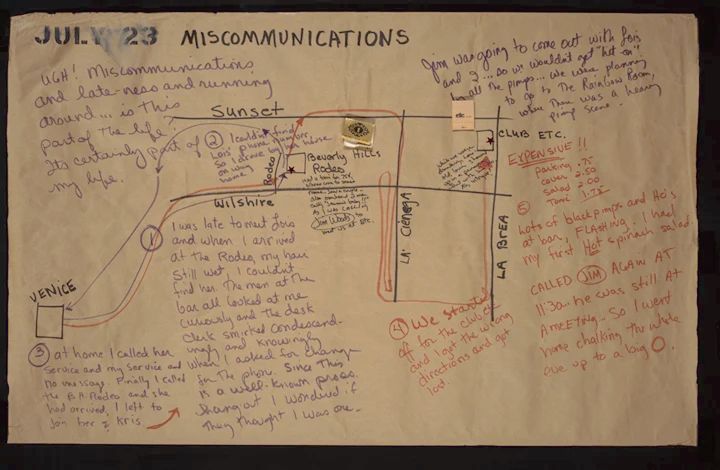 JULY 23 MISCOMMUNICATIONS
UGH! Miscommunications
and late-ness and running
around... is this
part of the life?
Its certainly part of
my life.
Jim was going to come out with Lois
and I... so we wouldn't get "hit on"
by all the pimps... we were planning
to go to The Rainbow Room,
where there was a heavy
pimp scene.
Sunset
② I couldn't find
Lois' phone number
so I drove by her house
on way
home
Rodeo
Beverly
Rodeo
HILLS
Wilshire
as I was calling
Jim Woods to
meet us at Etc.
LA CIENEGA
LA BREA
etc...
CLUB ETC.
EXPENSIVE!!
parking .75
cover 2.50
salad 2.00
Tonic 1.75
⑤
Lots of black pimps and Ho's
at bar, FLASHING. I had
my first Hot spinach salad.
CALLED JIM AGAIN AT
11:30... he was still AT
A MEETING... So I went
home chalking the whole
eve up to a big O.
① I was late to meet Lois
and when I arrived
at the Rodeo, my hair
still wet, I couldn't
find her. The men at the
bar all looked at me
curiously and the desk
clerk smirked condescend-
ingly and knowingly
when I asked for change
for the phone. Since this
is a well-known pross.
hang out I wondered if
they thought I was one.
VENICE
③ at home I called her
service and my service and
no message. Finally I called
the B.H. Rodeo and she
had arrived, I left to
join her & Kris
④ We started
off for the club etc
and I got the wrong
directions and got
lost.